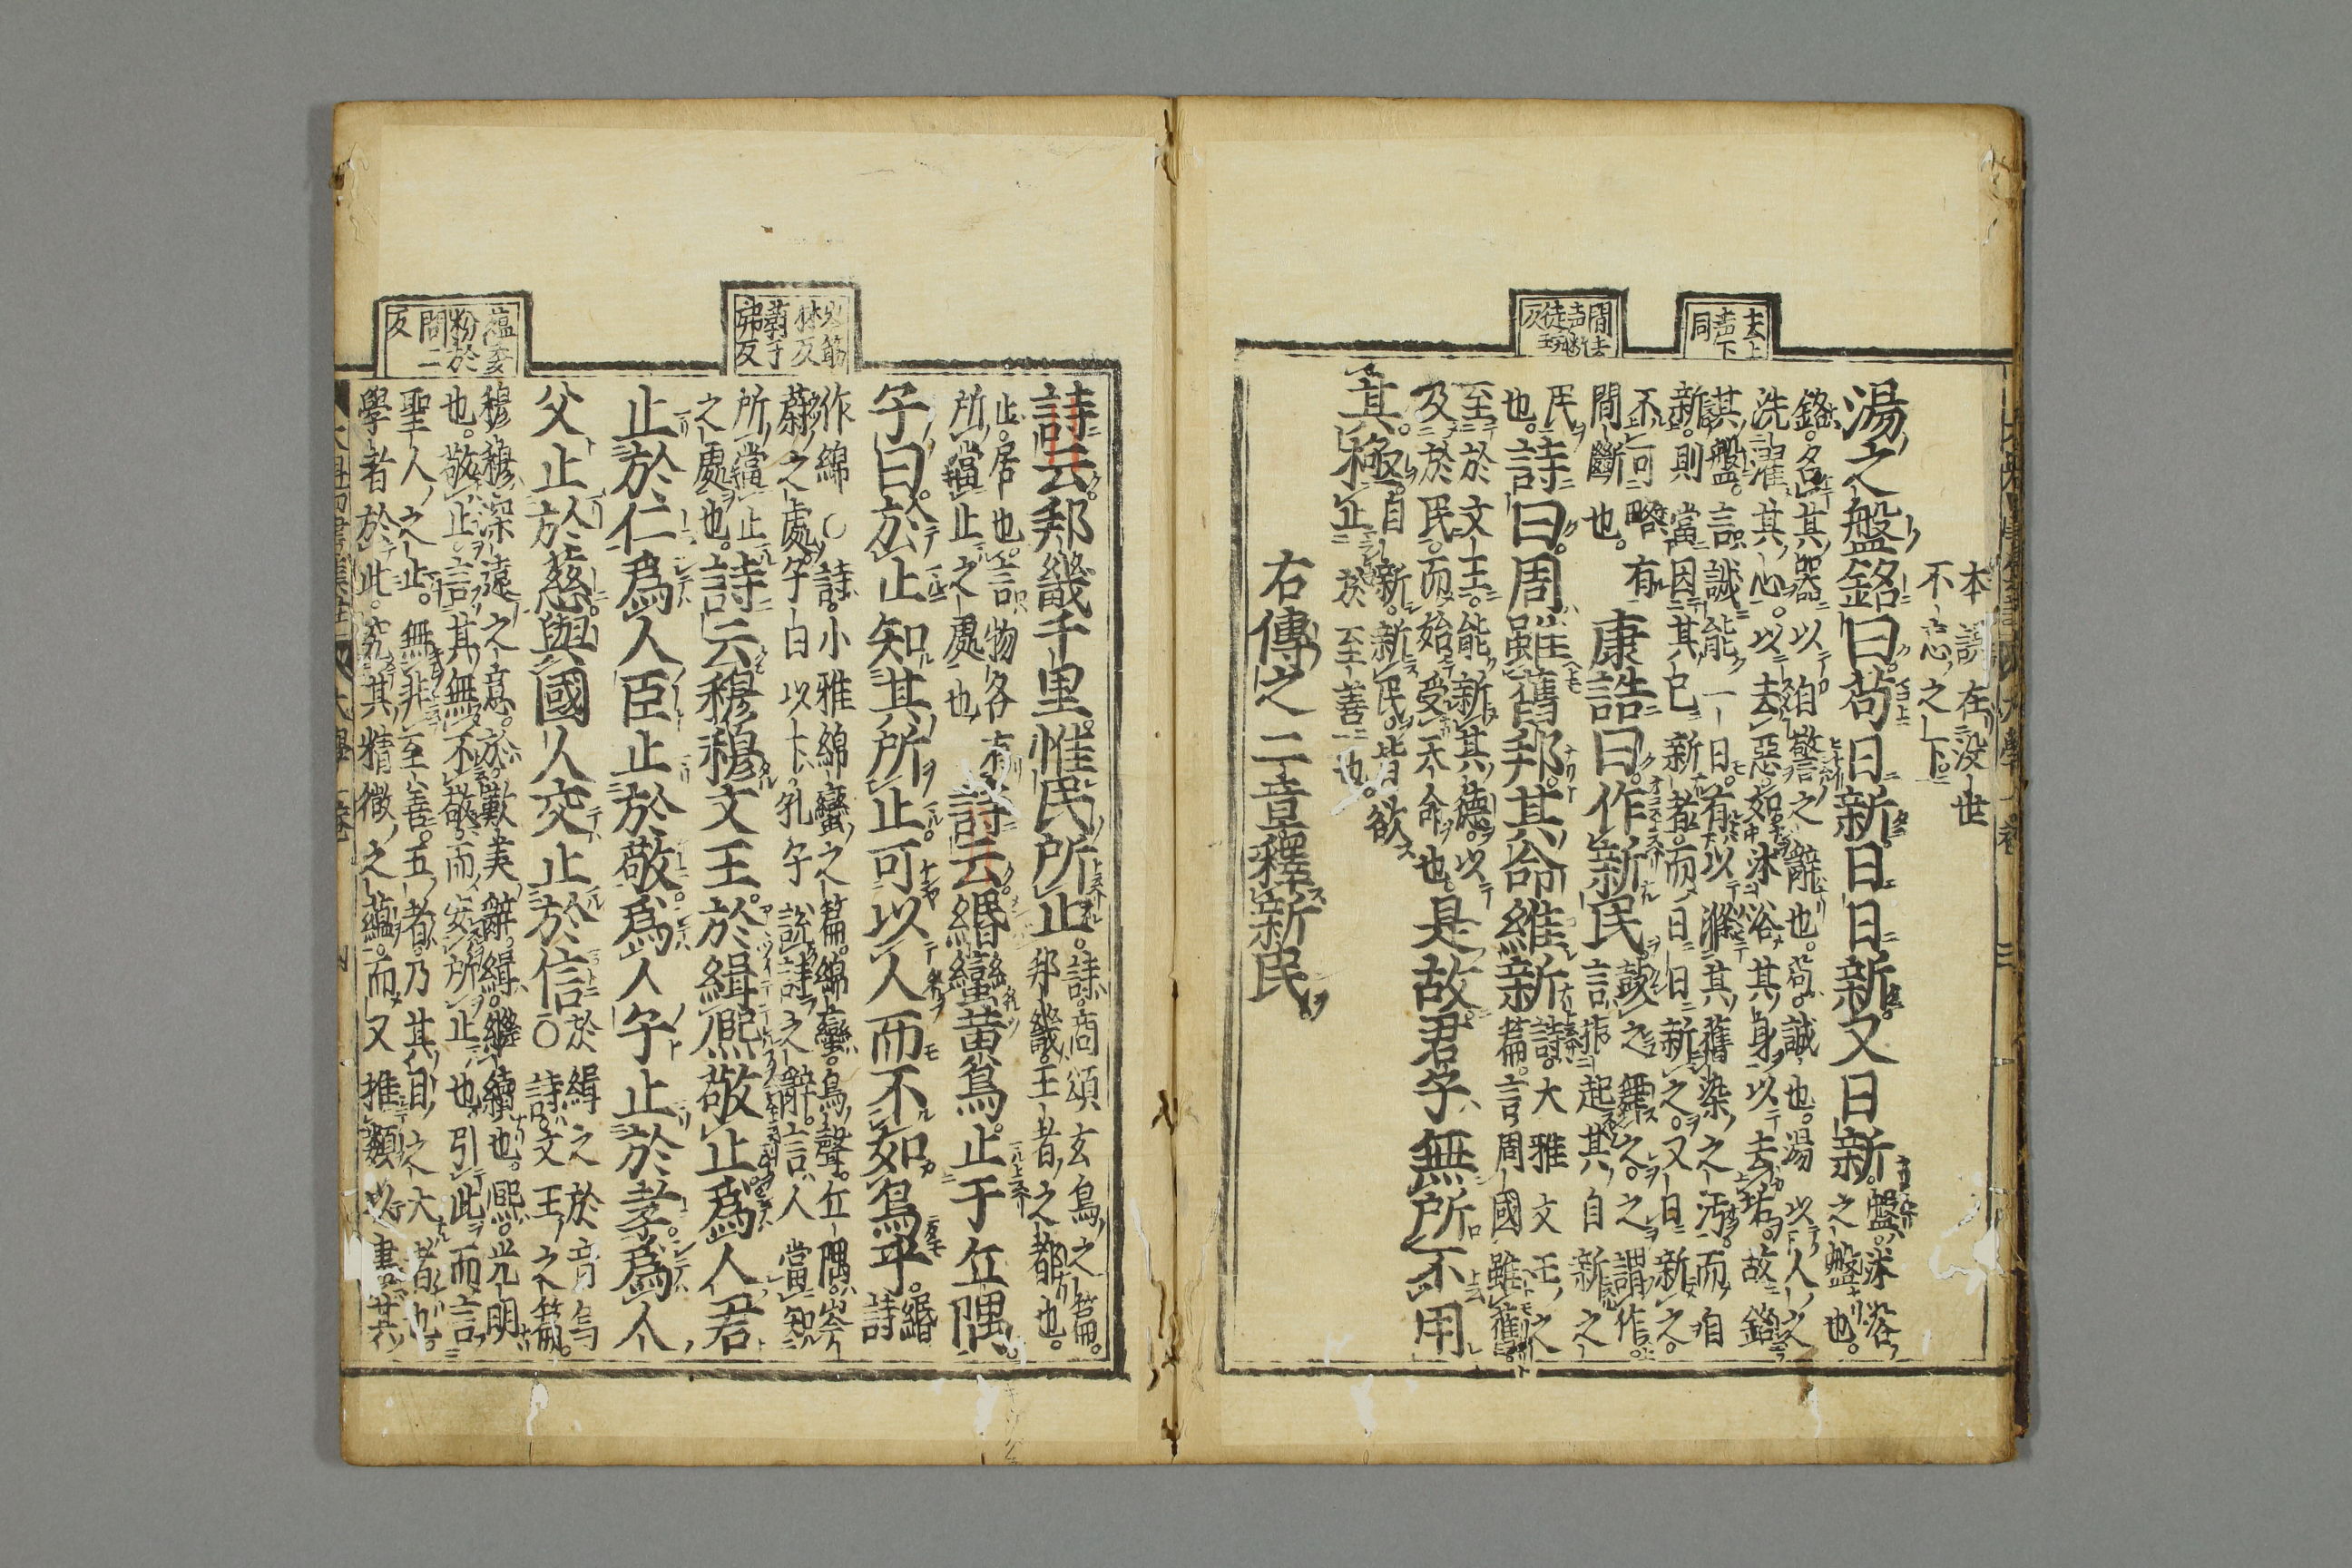 去上
声下
同
間去
声断
徒玩
反
本誤在沒世
不忘之下
湯之盤銘曰。苟日新。日日新。又日新。盤。沐浴
之盤也。
銘。名其器以自警之辭也。苟。誠也。湯以人之
洗濯其心。以去惡。如沐浴其身以去垢。故銘
其盤。言誠能一日。有以滌其舊染之汚。而自
新。則當因其已新者。而日日新之。又日新之。
不可略有
間斷也。
康誥曰。作新民
鼓之舞之。之謂作。
言振起其自新之
民
也。
詩曰。周雖舊邦。其命維新
詩。大雅文王之
篇。言周國雖舊。
至於文王。能新其德。以
及於民。而始受天命也
是故君子無所不用
其極。
自新。新民。皆欲
止於至善也。
右傳之二章釋新民
蔚于
弗反
蘊委
粉於
問二
反
詩云。邦畿千里。惟民所止。詩。商頌玄鳥之篇。
邦畿。王者之都也。
止。居也。言物各有
所當止之處也
詩云。緡蠻黃鳥。止于丘隅。
子曰。於止知其所止。可以人而不如鳥乎。緡
詩
作綿○詩。小雅綿蠻之篇。綿蠻。鳥聲。丘隅。岑
蔚之處。子曰以下。孔子說詩之辭。言人當知
所當止
之處也。
詩云穆穆文王。於緝熙敬止。爲人君
止於仁。爲人臣止於敬。爲人子止於孝。爲人
父止於慈。與國人交止於信。
於緝之於音烏
○詩。文王之篇。
穆穆。深遠之意。於。歎美辭。緝。繼續也。熙。光明
也。敬止。言其無不敬。而安所止也。引此而言
聖人之止。無非至善。五者。乃其目之大者也。
學者於此。究其精微之蘊。而又推類以盡其